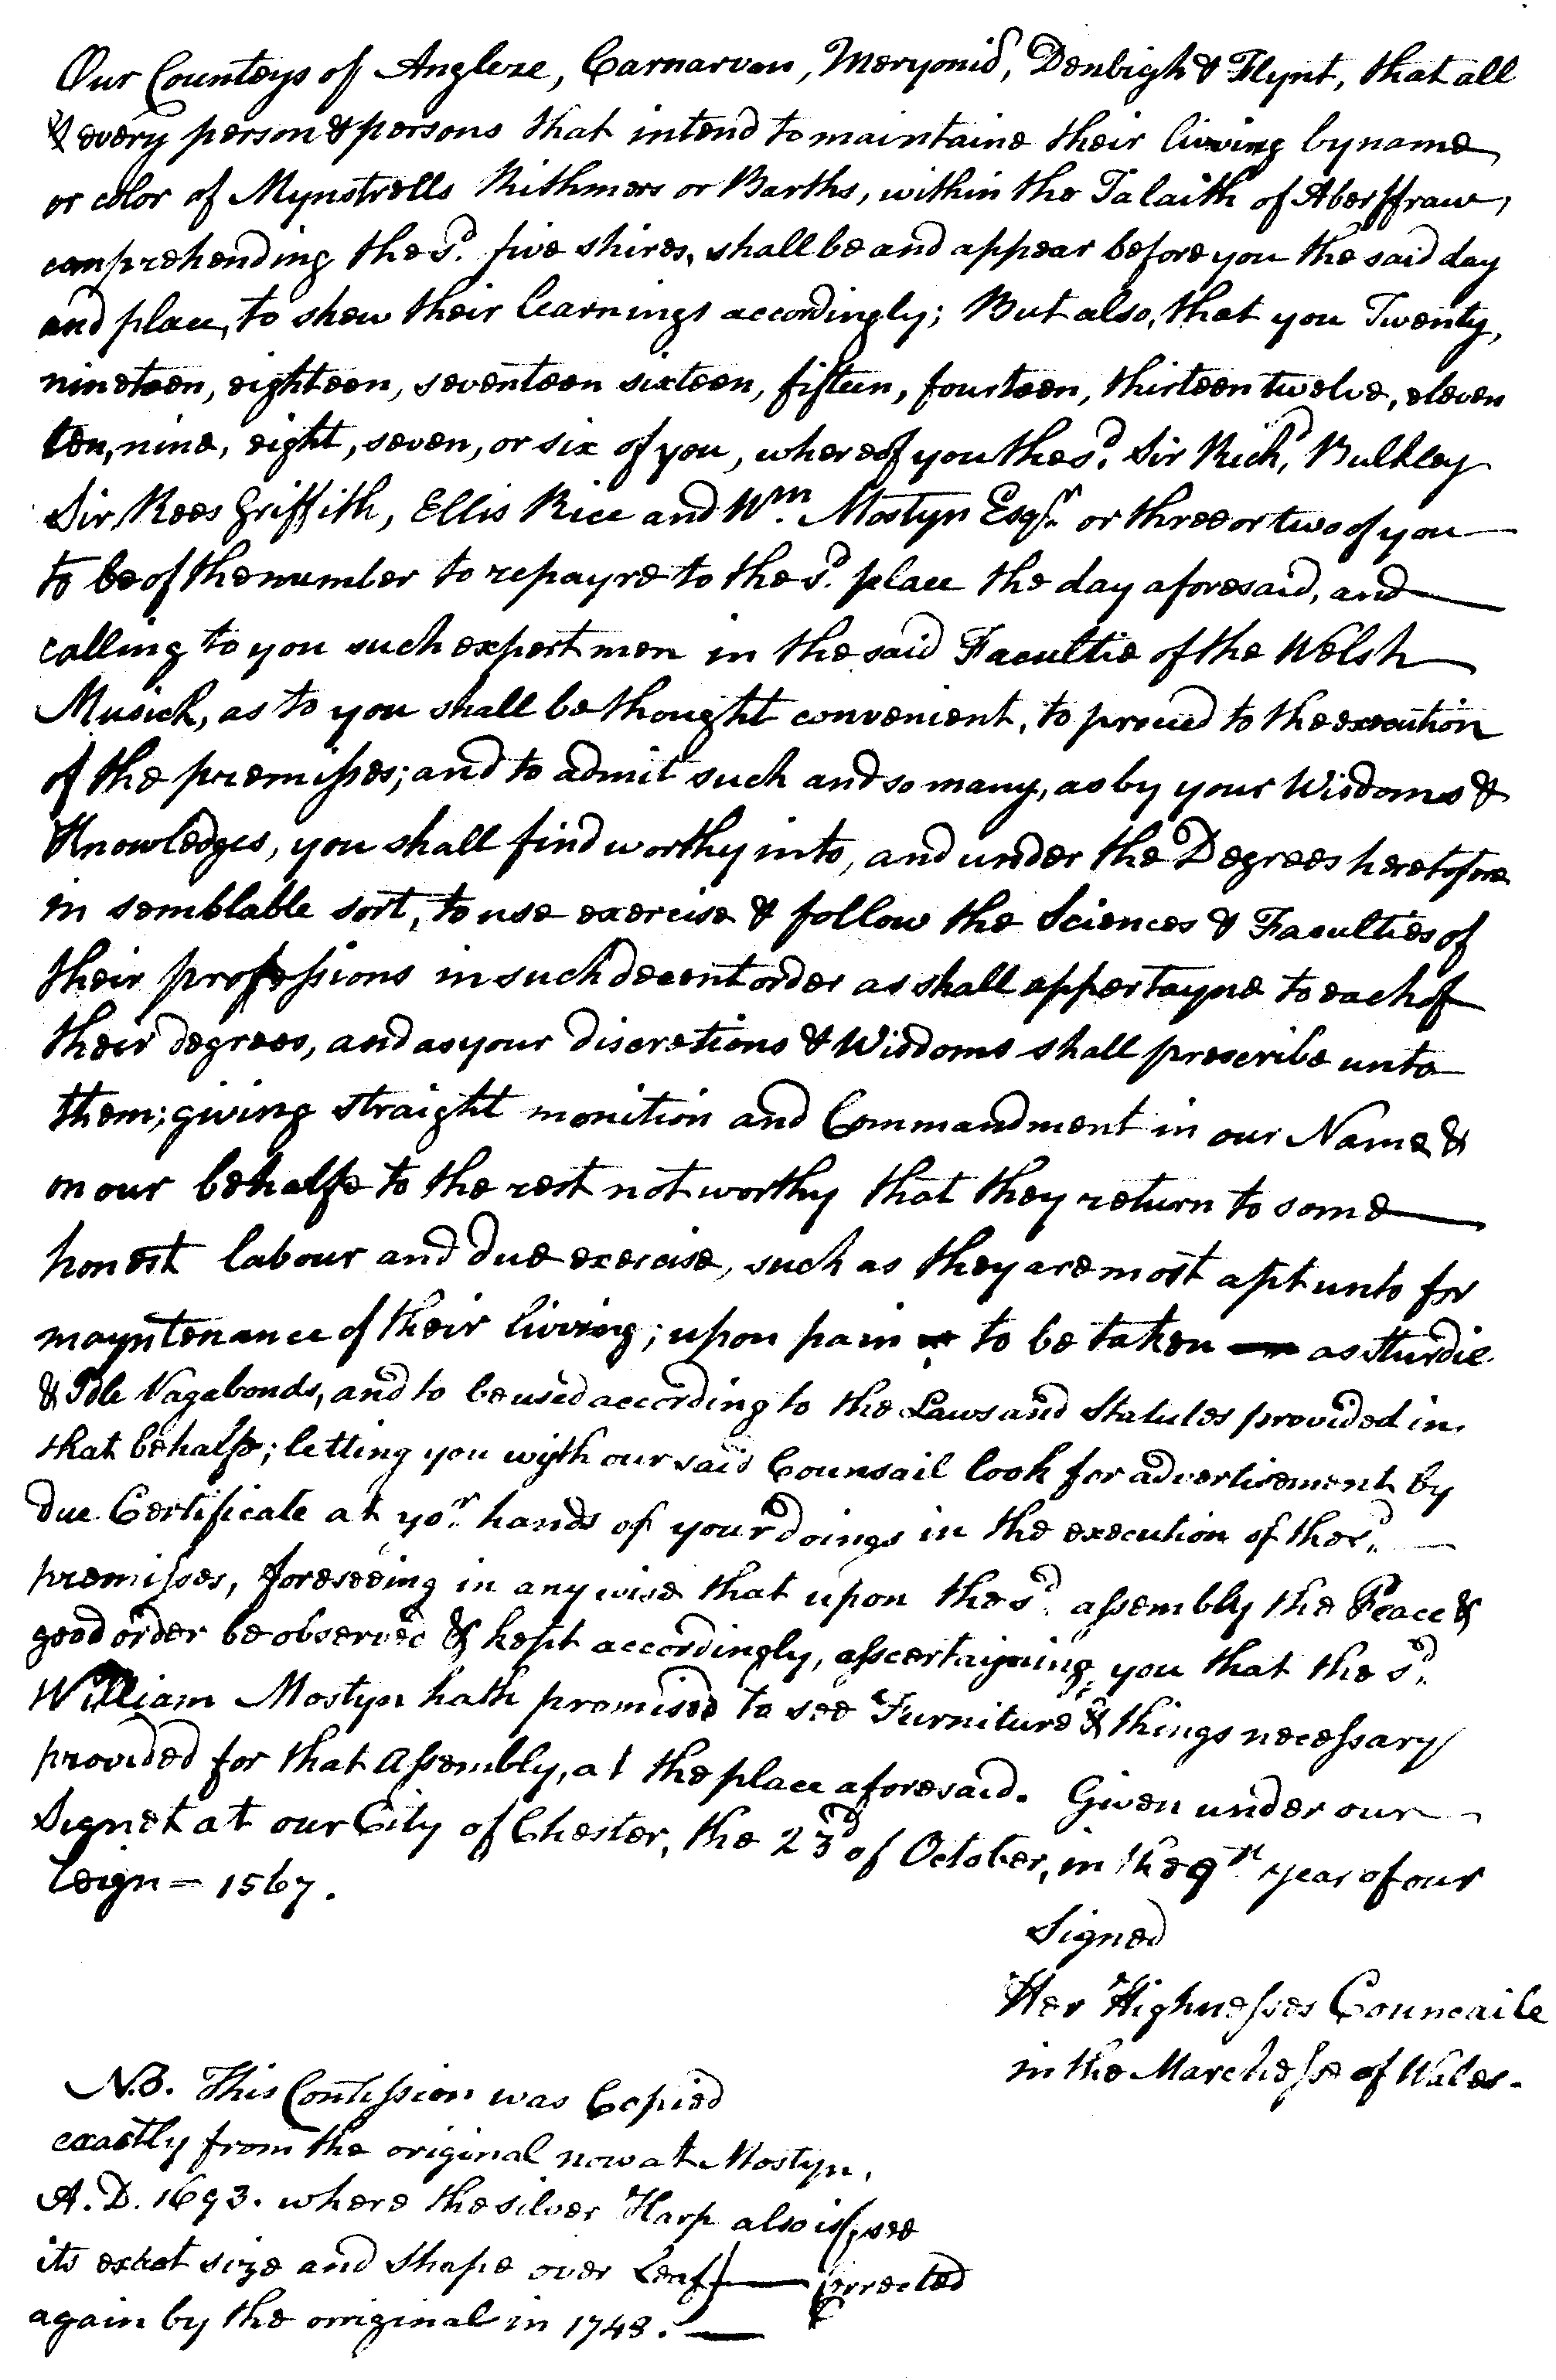 Our Counteys of Anglexe, Carnarvon, Meryonid, Denbigh & Flynt, that all
& every person & persons that intend to maintaine their living by name
or color of Mynstrells Rithmers or Barths, within the Talaith of Aberffraw,
comprehending the sd. five shires, shall be and appear before you the said day
and place, to shew their learnings accordingly; But also, that you Twenty,
nineteen, eighteen, seventeen sixteen, fifteen, fourteen, thirteen twelve, eleven
ten, nine, eight, seven, or six of you, whereof you the sd. Sir Richd, Bulkley
Sir Rees Griffith, Ellis Rice and Wm. Mostyn Esqr. or three or two of you
to be of the number to repayre to the sd. place the day aforesaid, and
calling to you such expert men in the said Facultie of the Welsh
Musick, as to you shall be thought convenient, to proceed to the execution
of the premisses; and to admit such and so many, as by your Wisdoms &
Knowledges, you shall find worthy into, and under the Degrees heretofore
in semblable sort, to use exercise & follow the Sciences & Faculties of
their professions in such decent order as shall appertayne to each of
their degrees, and as your discretions & Wisdoms shall prescribe unto
them; giving straight monition and Commandment in our Name &
on our behalfe to the rest not worthy that they return to some
honest labour and due exercise, such as they are most apt unto for
mayntenance of their living; upon pain to be taken as sturdie
& Idle Vagabonds, and to be used according to the Laws and Statutes provided in
that behalfe; letting you wyth our said Counsail look for advertisement by
due Certificate at yor. hands of your doings in the execution of the sd.
premisses, foreseeing in any wise that upon the sd. assembly the Peace &
good order be observed & kept accordingly, asscertayning you that the sd.
William Mostyn hath promised to see Furniture & things necessary
provided for that Assembly, at the place aforesaid. Given under our
Signet at our City of Chester, the 23d of October, in the 9th year of our
Reign = 1567.
Signed
Her Highnesses Councaile
in the Marchesse of Wales.
N.B. This Comission was Copied
exactly from the original now at Mostyn,
A.D. 1693. where the silver Harp also is (see
its exact size and shape over Leaf) Corrected
again by the original in 1748.